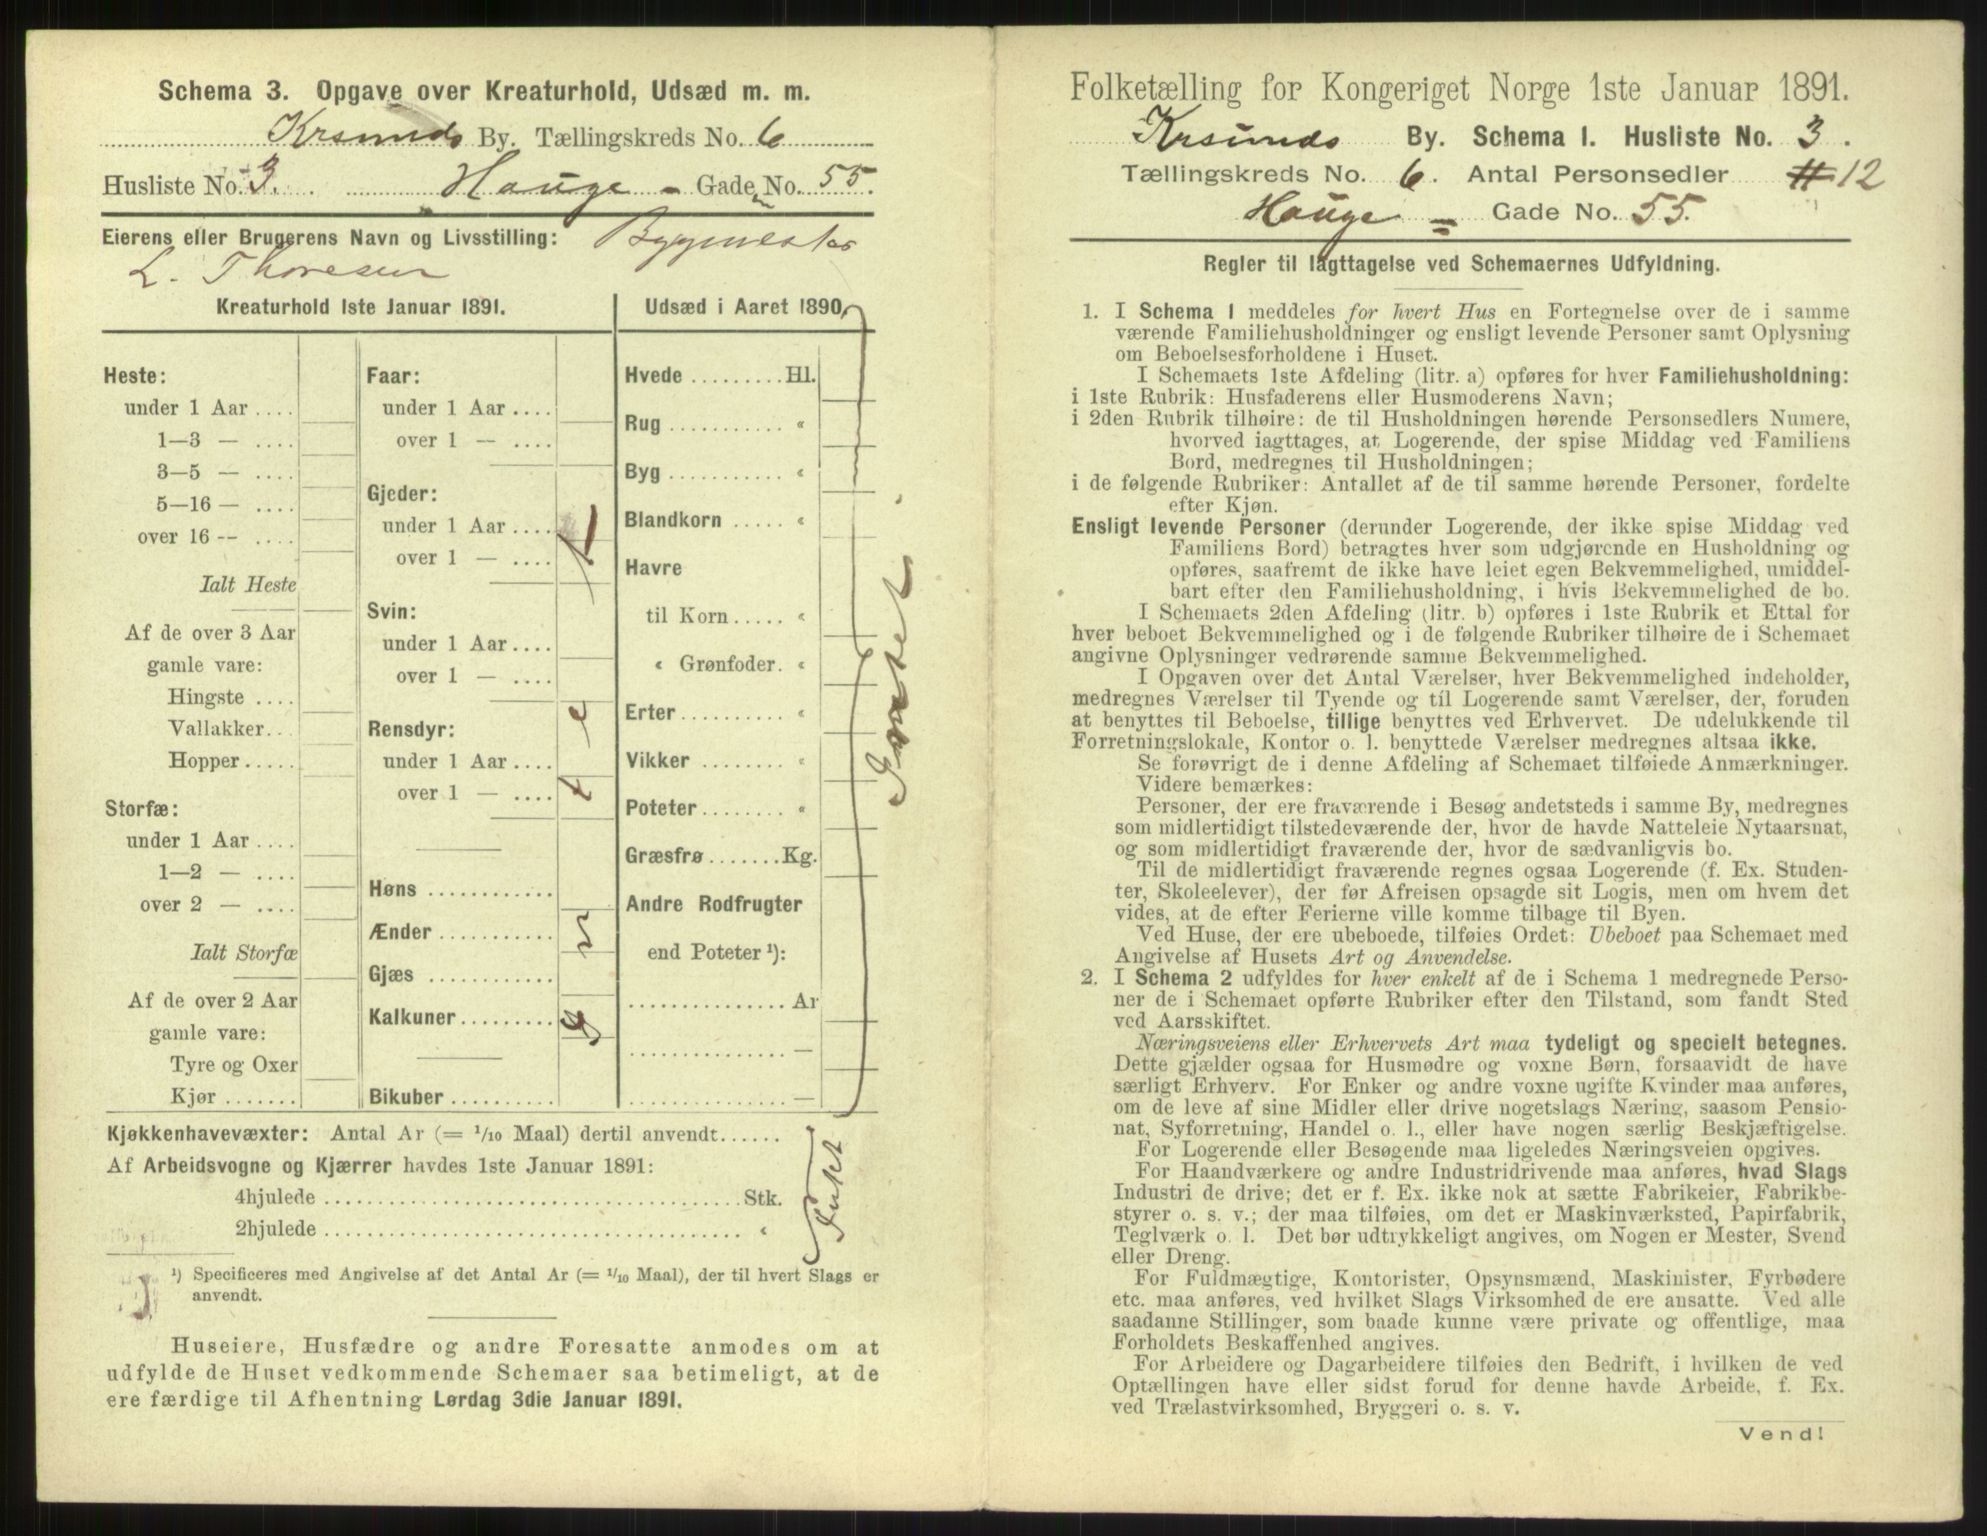 Schema 3. Opgave over Kreaturhold, Udsæd m. m.
Krsunds By. Tællingskreds No. 6
Husliste No. 3. Hauge - Gade No. 55.
Eierens eller Brugerens Navn og Livsstilling: Bygmester
L. Thoresen
Kreaturhold 1ste Januar 1891.
Heste:
under 1 Aar ....
1—3 — ....
3—5 — ....
5—16 — ....
over 16 — ....
Ialt Heste
Af de over 3 Aar
gamle vare:
Hingste ....
Vallakker..
Hopper.....
Storfæ:
under 1 Aar ....
1—2 — ....
over 2 — ....
Ialt Storfæ
Af de over 2 Aar
gamle vare:
Tyre og Oxer
Kjør .......
Faar:
under 1 Aar ....
over 1 — ....
Gjeder:
under 1 Aar ....
over 1 — ....
Svin:
under 1 Aar ....
over 1 — ....
Rensdyr:
under 1 Aar ....
over 1 — ....
Høns ............
Ænder ...........
Gjæs ............
Kalkuner.........
Bikuber ..........
Udsæd i Aaret 1890.
Hvede .........Hl.
Rug ........... «
Byg ........... «
Blandkorn ..... «
Havre
til Korn..... «
« Grønfoder. «
Erter.......... «
Vikker ........ «
Poteter ........ «
Græsfrø.......Kg.
Andre Rodfrugter
end Poteter ¹):
............... Ar
............... —
............... —
Intet
Kjøkkenhavevæxter: Antal Ar (= 1/10 Maal) dertil anvendt......
Af Arbeidsvogne og Kjærrer havdes 1ste Januar 1891:
4hjulede ........................................Stk.
2hjulede ........................................ «
Intet
¹) Specificeres med Angivelse af det Antal Ar (= 1/10 Maal), der til hvert Slags er
anvendt.
Huseiere, Husfædre og andre Foresatte anmodes om at
udfylde de Huset vedkommende Schemaer saa betimeligt, at de
ere færdige til Afhentning Lørdag 3die Januar 1891.
Folketælling for Kongeriget Norge 1ste Januar 1891.
Krsunds By. Schema 1. Husliste No. 3.
Tællingskreds No. 6. Antal Personsedler 11 12
Hauge = Gade No. 55.
Regler til Iagttagelse ved Schemaernes Udfyldning.
1. I Schema 1 meddeles for hvert Hus en Fortegnelse over de i samme
værende Familiehusholdninger og ensligt levende Personer samt Oplysning
om Beboelsesforholdene i Huset.
I Schemaets 1ste Afdeling (litr. a) opføres for hver Familiehusholdning:
i 1ste Rubrik: Husfaderens eller Husmoderens Navn;
i 2den Rubrik tilhøire: de til Husholdningen hørende Personsedlers Numere,
hvorved iagttages, at Logerende, der spise Middag ved Familiens
Bord, medregnes til Husholdningen;
i de følgende Rubriker: Antallet af de til samme hørende Personer, fordelte
efter Kjøn.
Ensligt levende Personer (derunder Logerende, der ikke spise Middag ved
Familiens Bord) betragtes hver som udgjørende en Husholdning og
opføres, saafremt de ikke have leiet egen Bekvemmelighed, umiddel-
bart efter den Familiehusholdning, i hvis Bekvemmelighed de bo.
I Schemaets 2den Afdeling (litr. b) opføres i 1ste Rubrik et Ettal for
hver beboet Bekvemmelighed og i de følgende Rubriker tilhøire de i Schemaet
angivne Oplysninger vedrørende samme Bekvemmelighed.
I Opgaven over det Antal Værelser, hver Bekvemmelighed indeholder,
medregnes Værelser til Tyende og til Logerende samt Værelser, der, foruden
at benyttes til Beboelse, tillige benyttes ved Erhvervet. De udelukkende til
Forretningslokale, Kontor o. l. benyttede Værelser medregnes altsaa ikke.
Se forøvrigt de i denne Afdeling af Schemaet tilføiede Anmærkninger.
Videre bemærkes:
Personer, der ere fraværende i Besøg andetsteds i samme By, medregnes
som midlertidigt tilstedeværende der, hvor de havde Natteleie Nytaarsnat,
og som midlertidigt fraværende der, hvor de sædvanligvis bo.
Til de midlertidigt fraværende regnes ogsaa Logerende (f. Ex. Studen-
ter, Skoleelever), der før Afreisen opsagde sit Logis, men om hvem det
vides, at de efter Ferierne ville komme tilbage til Byen.
Ved Huse, der ere ubeboede, tilføies Ordet: Ubeboet paa Schemaet med
Angivelse af Husets Art og Anvendelse.
2. I Schema 2 udfyldes for hver enkelt af de i Schema 1 medregnede Perso-
ner de i Schemaet opførte Rubriker efter den Tilstand, som fandt Sted
ved Aarsskiftet.
Næringsveiens eller Erhvervets Art maa tydeligt og specielt betegnes.
Dette gjælder ogsaa for Husmødre og voxne Børn, forsaavidt de have
særligt Erhverv. For Enker og andre voxne ugifte Kvinder maa anføres,
om de leve af sine Midler eller drive nogetslags Næring, saasom Pensio-
nat, Syforretning, Handel o. l., eller have nogen særlig Beskjæftigelse.
For Logerende eller Besøgende maa ligeledes Næringsveien opgives.
For Haandværkere og andre Industridrivende maa anføres, hvad Slags
Industri de drive; det er f. Ex. ikke nok at sætte Fabrikeier, Fabrikbe-
styrer o. s. v.; der maa tilføies, om det er Maskinværksted, Papirfabrik,
Teglværk o. l. Det bør udtrykkeligt angives, om Nogen er Mester, Svend
eller Dreng.
For Fuldmægtige, Kontorister, Opsynsmænd, Maskinister, Fyrbødere
etc. maa anføres, ved hvilket Slags Virksomhed de ere ansatte. Ved alle
saadanne Stillinger, som baade kunne være private og offentlige, maa
Forholdets Beskaffenhed angives.
For Arbeidere og Dagarbeidere tilføies den Bedrift, i hvilken de ved
Optællingen have eller sidst forud for denne havde Arbeide, f. Ex.
ved Trælastvirksomhed, Bryggeri o. s. v.
Vend!